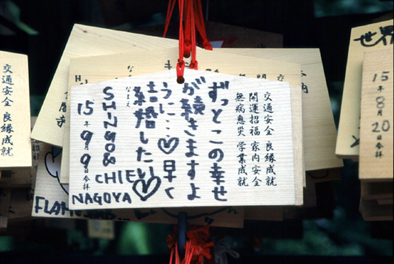 交通安全 良縁成就
開運招福 家内安全
無病息災 学業成就
ずっとこの幸せ
が続きますよ
うに…♡早く
結婚したい
♡
SHINGO&
CHIE
15年9月9日
NAGOYA
交通安全 良縁成就
15年8月20日
世界
FLA